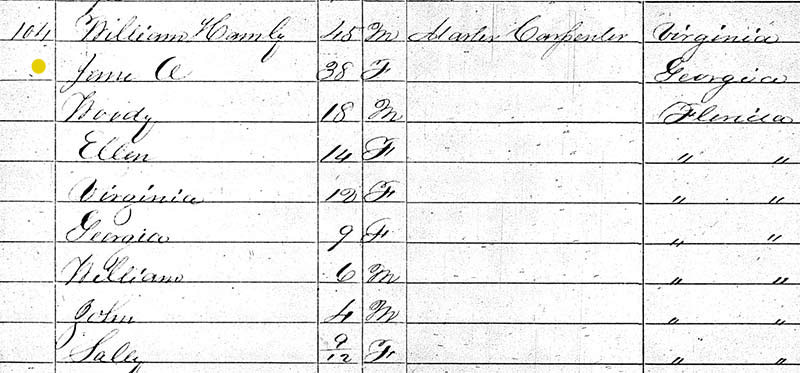 104 William Hamly 45 M Master Carpenter Virginia
Jane A 38 F Georgia
Woody 18 M Florida
Ellen 14 F " "
Virginia 12 F " "
Georgia 9 F " "
William 6 M " "
John 4 M " "
Saley 9/12 F " "